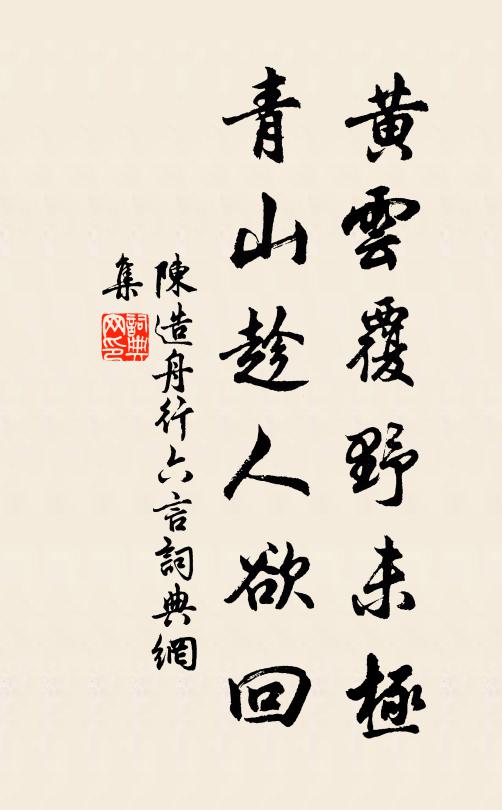 黃雲覆野未極
青山趁人欲回
陳造舟行六言詞典網
集
詞典
网印